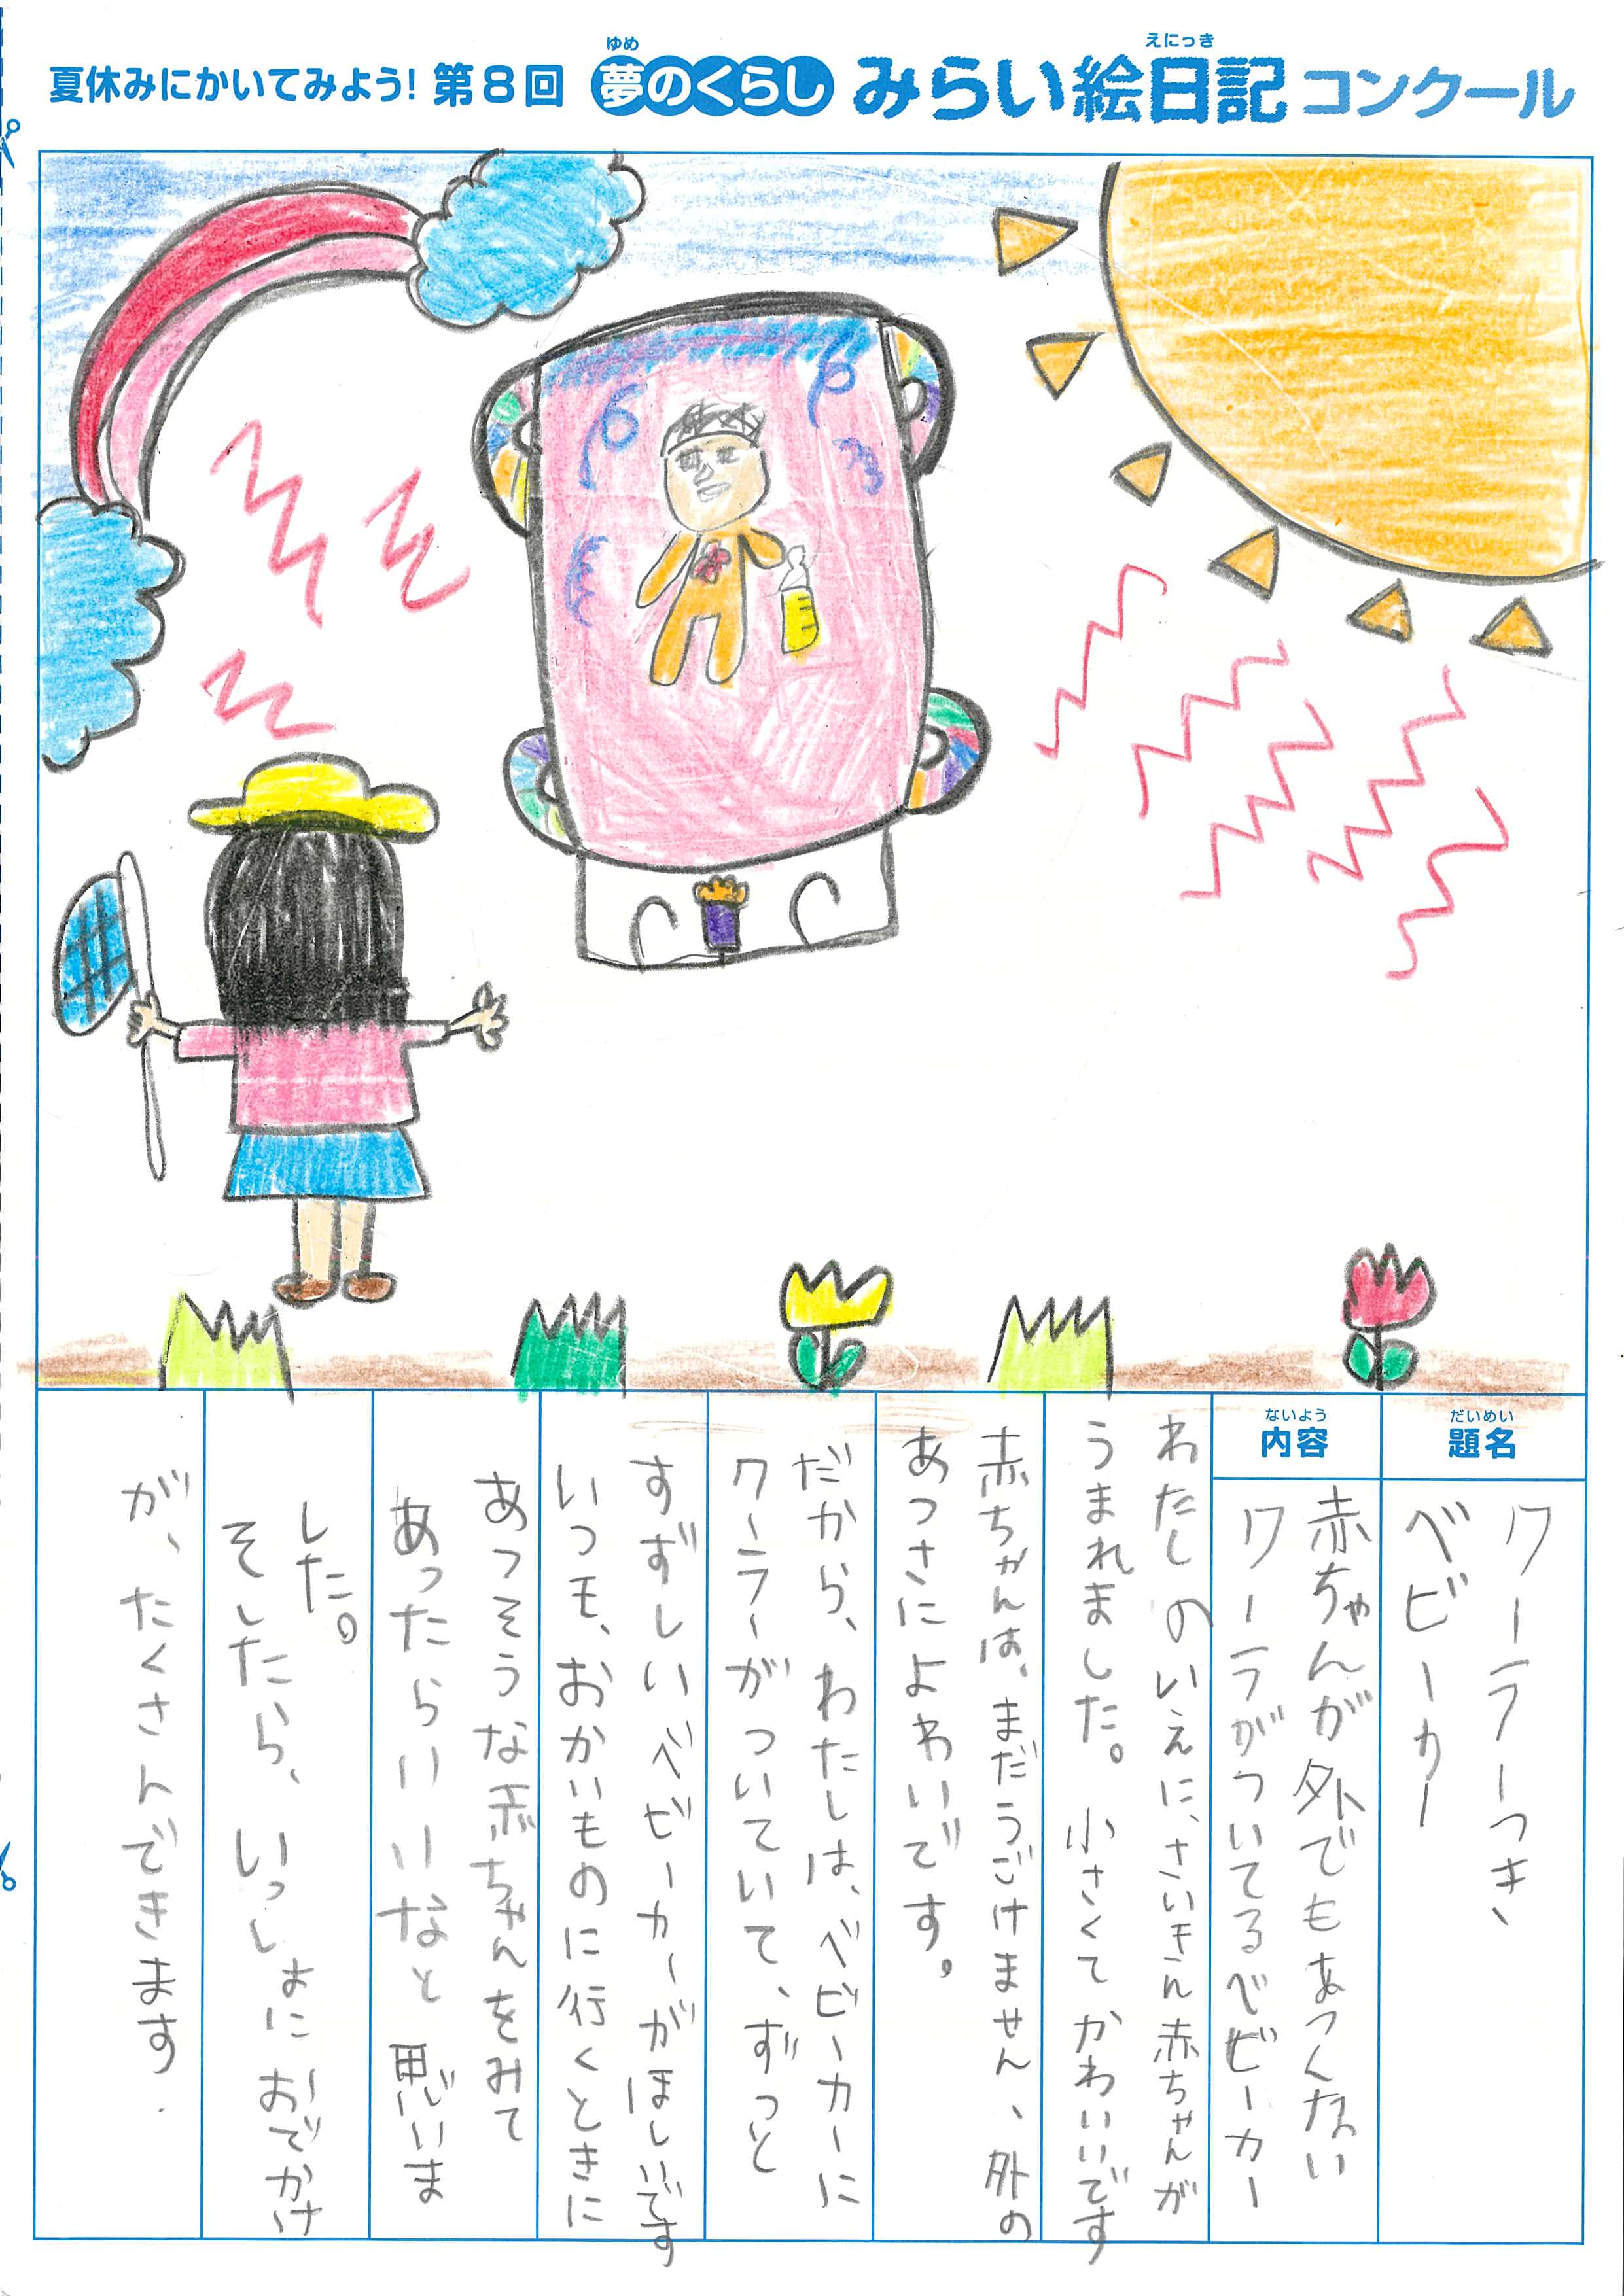 夏休みにかいてみよう! 第8回 夢のくらし みらい絵日記 コンクール
ゆめ
えにっき
だいめい
題名
クーラーつき
ベビーカー
ないよう
内容
赤ちゃんが外でもあつくない
クーラがついてるベビーカー
わたしのいえに、さいきん赤ちゃんが
うまれました。小さくてかわいいです
赤ちゃんは、まだうごけません、外の
あつさによわいです。
だから、わたしは、ベビーカーに
クーラーがついていて、ずっと
すずしいベビーカーがほしいです
いつも、おかいものに行くときに
あつそうな赤ちゃんをみて
あったらいいなと思いま
した。
そしたら、いっしょにおでかけ
が、たくさんできます.